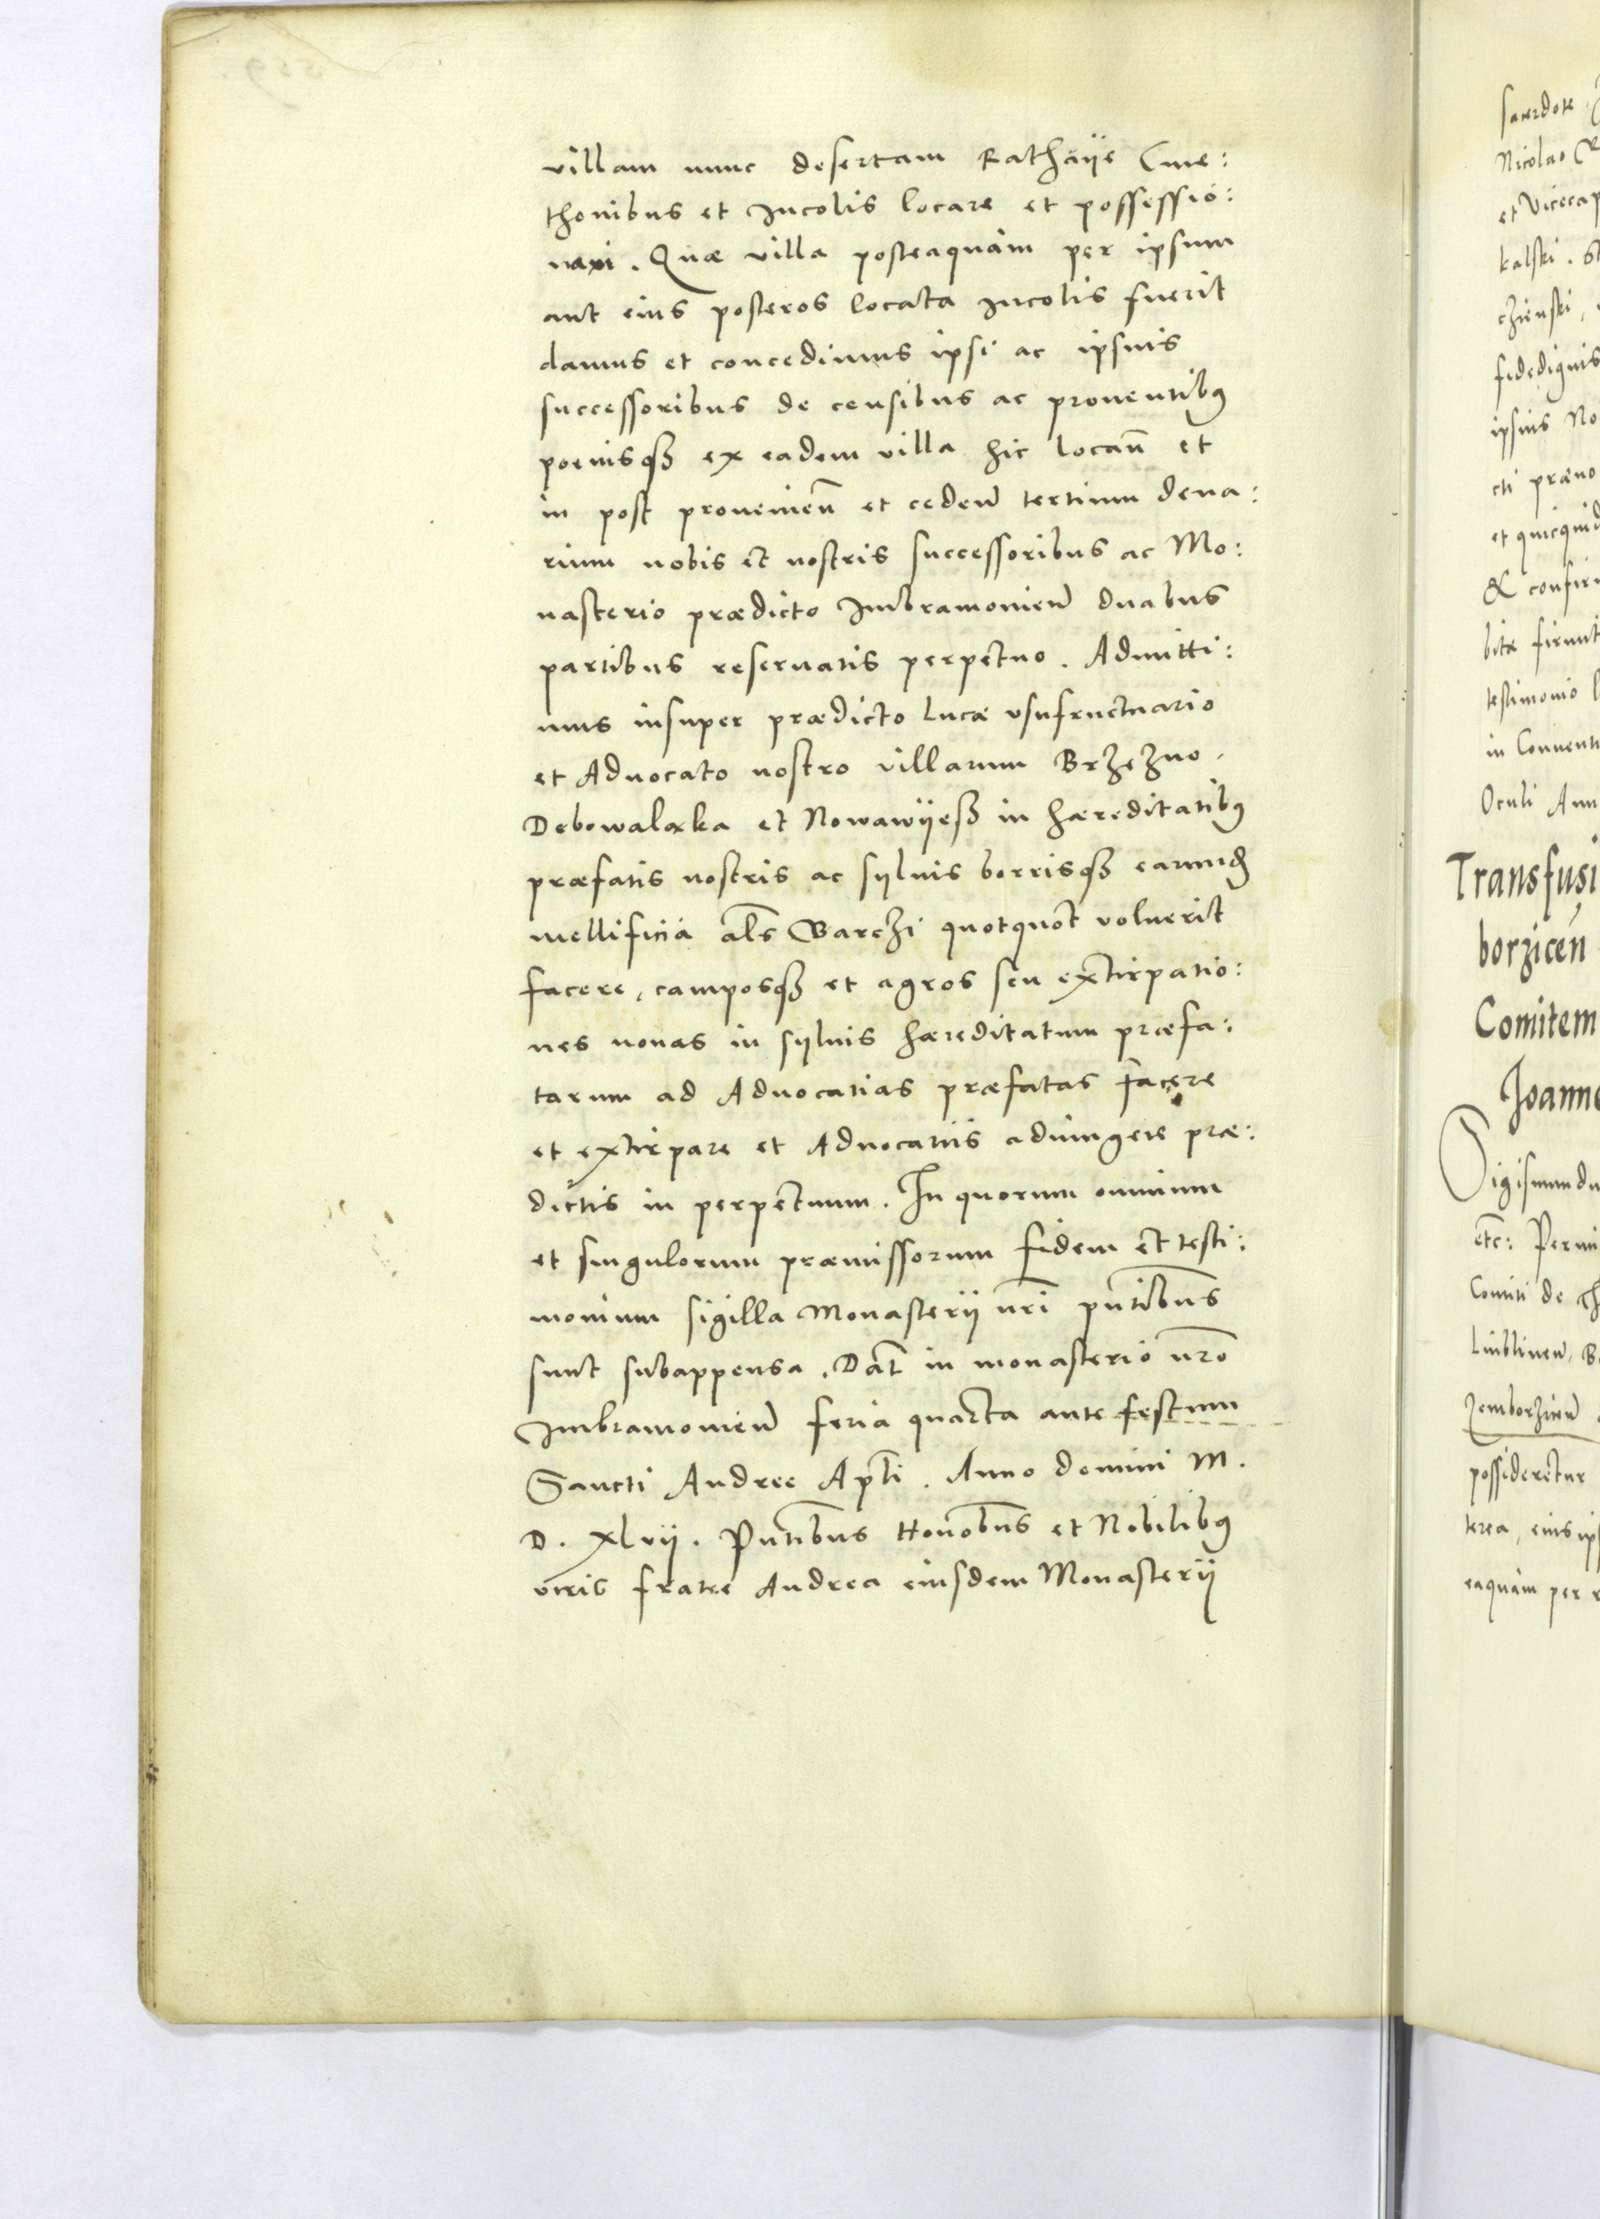 villam nunc desertam Rathaÿe Cme:
thonibus et Incolis locare et possessio:
nare. Quæ villa posteaquam per ipsum
aut eius posteros locata Incolis fuerit
damus et concedimus ipsi ac ipsius
successoribus de censibus ac prouentibꝰ
poenisqꝫ ex eadem villa hic locañ et
in post prouenieñ et cedeñ tertium dena:
rium nobis et nostris successoribus ac Mo:
nasterio prædicto Imbramonieñ duabus
partibus reseruatis perpetuo. Admitti:
mus insuper prædicto Lucæ vsufructuario
et Aduocato nostro villarum Brzezno.
Debowalaka et Nowawÿesß in hæreditatibꝰ
præfatis nostris ac syluis borrisqꝫ earundꝫ
mellificia als Barczi quotquot voluerit
facere, camposqꝫ et agros seu extirpatio:
nes nouas in syluis hæreditatum præfa:
tarum ad Aduocatias præfatas facere
et extirpare et Aduocatiis adiungere præ:
dictis in perpetuum. In quorum omnium
et singulorum præmissorum fidem et testi:
monium sigilla Monasterii nri pñtibus
sunt subappensa. Dat in monasterio nro
Imbramonieñ feria quarta ante festum
Sancti Andree Apli. Anno domini M.
D. xlvii. Pñtibus Honobus et Nobilibꝰ
viris fratre Andrea eiusdem Monasterii
sacerdote
Nicolao
et Vicecap
kalski. St
chienski,
fidedignis
ipsius No
cti præno
et quicquid
& confir
bitæ firmit
testimonio
in Conuent
Oculi Ann
Transfusi
borzicen
Comitem
Joanne
Sigismundu
etc: Permi
Comiti de
Lublineñ,
Zemborziceñ
possideretur
terea, eius ip
eaquam per